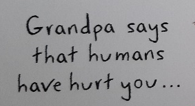 Grandpa says
that humans
have hurt you...